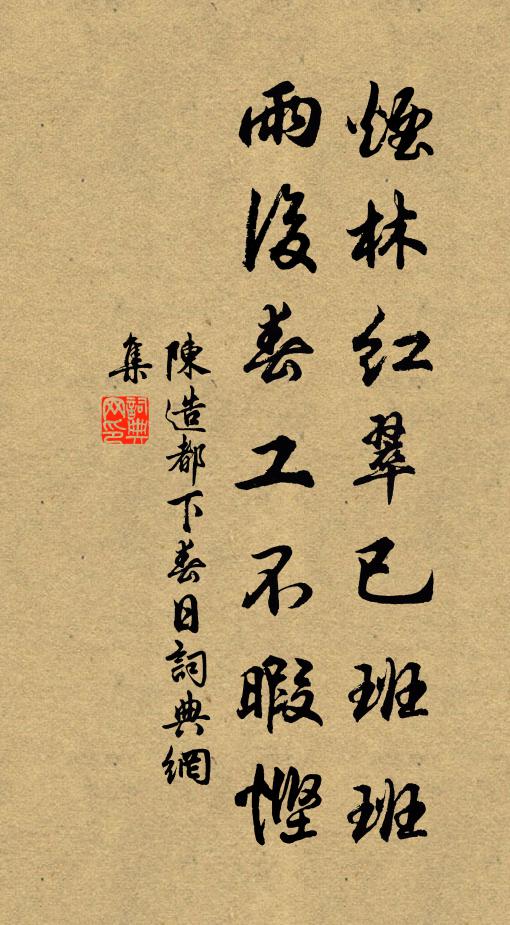 煙林紅翠已班班
雨後春工不暇慳
陳造都下春日詞典網
集
詞典
网印